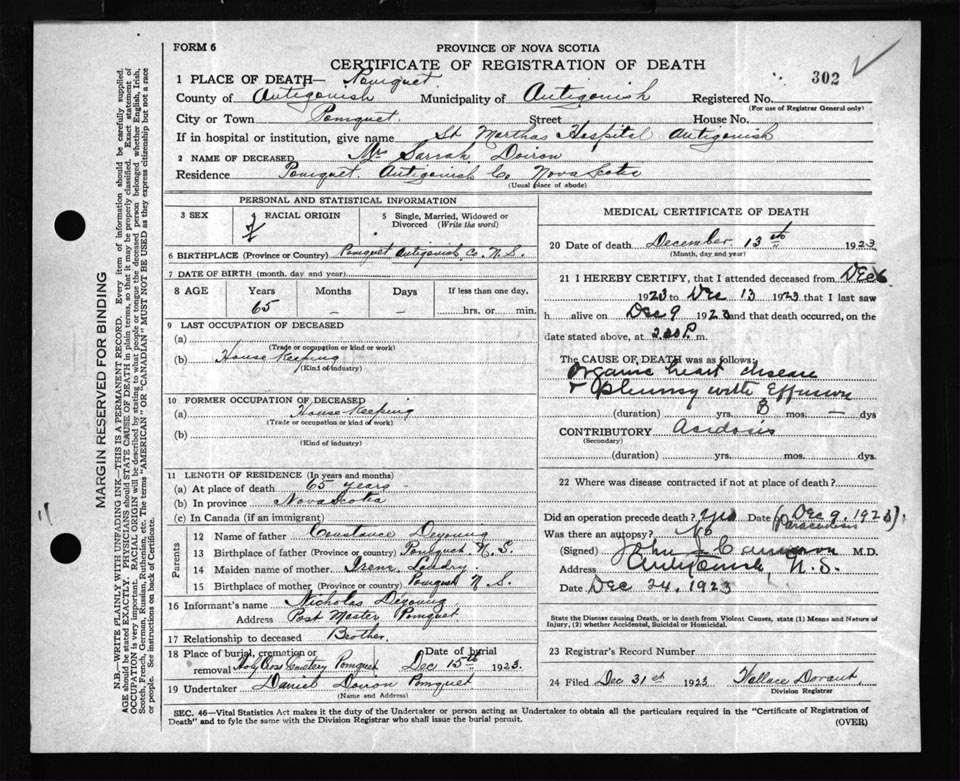 FORM 6
PROVINCE OF NOVA SCOTIA
CERTIFICATE OF REGISTRATION OF DEATH
302
1 PLACE OF DEATH— Pomquet
County of Antigonish Municipality of Antigonish Registered No.
(For use of Registrar General only)
City or Town Pomquet Street House No.
If in hospital or institution, give name St Marthas Hospital Antigonish
2 NAME OF DECEASED Mrs Sarrah Doiron
Residence Pomquet. Antigonish Co Nova Scotia
(Usual place of abode)
PERSONAL AND STATISTICAL INFORMATION
3 SEX F RACIAL ORIGIN 5 Single, Married, Widowed or Divorced (Write the word)
6 BIRTHPLACE (Province or Country) Pomquet Antigonish, Co. N.S.
7 DATE OF BIRTH (month, day and year)
8 AGE Years Months Days If less than one day,
65 – – hrs. or min.
9 LAST OCCUPATION OF DECEASED
(a)
(Trade or occupation or kind or work)
(b) House Keeping
(Kind of industry)
10 FORMER OCCUPATION OF DECEASED
(a) House Keeping
(Trade or occupation or kind of work)
(b)
(Kind of industry)
11 LENGTH OF RESIDENCE (In years and months)
(a) At place of death 65 years
(b) In province Nova Scotia
(c) In Canada (if an immigrant)
Parents
12 Name of father Constance Deyoung
13 Birthplace of father (Province or country) Pomquet N.S.
14 Maiden name of mother Irene Landry
15 Birthplace of mother (Province or country) Pomquet N.S.
16 Informant's name Nicholas Deyoung
Address Post Master Pomquet
17 Relationship to deceased Brother
18 Place of burial, cremation or removal Holy Cross Cemetery Pomquet Date of burial Dec 15th 1923.
19 Undertaker Daniel Doiron Pomquet
(Name and Address)
MEDICAL CERTIFICATE OF DEATH
20 Date of death December 13th 1923
(Month, day and year)
21 I HEREBY CERTIFY, that I attended deceased from Dec 6
1923 to Dec 13 1923 that I last saw
h alive on Dec 9 1923 and that death occurred, on the
date stated above, at 2.00 P. m.
The CAUSE OF DEATH was as follows:
Organic heart disease
& pleurisy with Effusion
(duration) yrs. 3 mos. – dys
CONTRIBUTORY Acidosis
(Secondary)
(duration) yrs. mos. dys.
22 Where was disease contracted if not at place of death?
Did an operation precede death? Yes Date Dec 9, 1923
(Paracentesis)
Was there an autopsy? No
(Signed) John Cameron M.D.
Address Antigonish, N.S.
Date Dec 24, 1923
State the Disease causing Death, or in death from Violent Causes, state (1) Means and Nature of Injury, (2) whether Accidental, Suicidal or Homicidal.
23 Registrar's Record Number
24 Filed Dec 31st 1923 Wallace Dorant
Division Registrar
SEC. 46—Vital Statistics Act makes it the duty of the Undertaker or person acting as Undertaker to obtain all the particulars required in the "Certificate of Registration of
Death" and to fyle the same with the Division Registrar who shall issue the burial permit.
(OVER)
MARGIN RESERVED FOR BINDING
N.B.—WRITE PLAINLY WITH UNFADING INK—THIS IS A PERMANENT RECORD. Every item of information should be carefully supplied.
AGE should be stated EXACTLY. PHYSICIANS should STATE CAUSE OF DEATH in plain terms, so that it may be properly classified. Exact statement of
OCCUPATION is very important. RACIAL ORIGIN will be described by stating to what people or tongue the deceased person belonged whether English, Irish,
Scotch, French, German, Russian, Ruthenian, etc. The terms "AMERICAN" or "CANADIAN" MUST NOT BE USED as they express citizenship but not a race
or people. See instructions on back of Certificate.